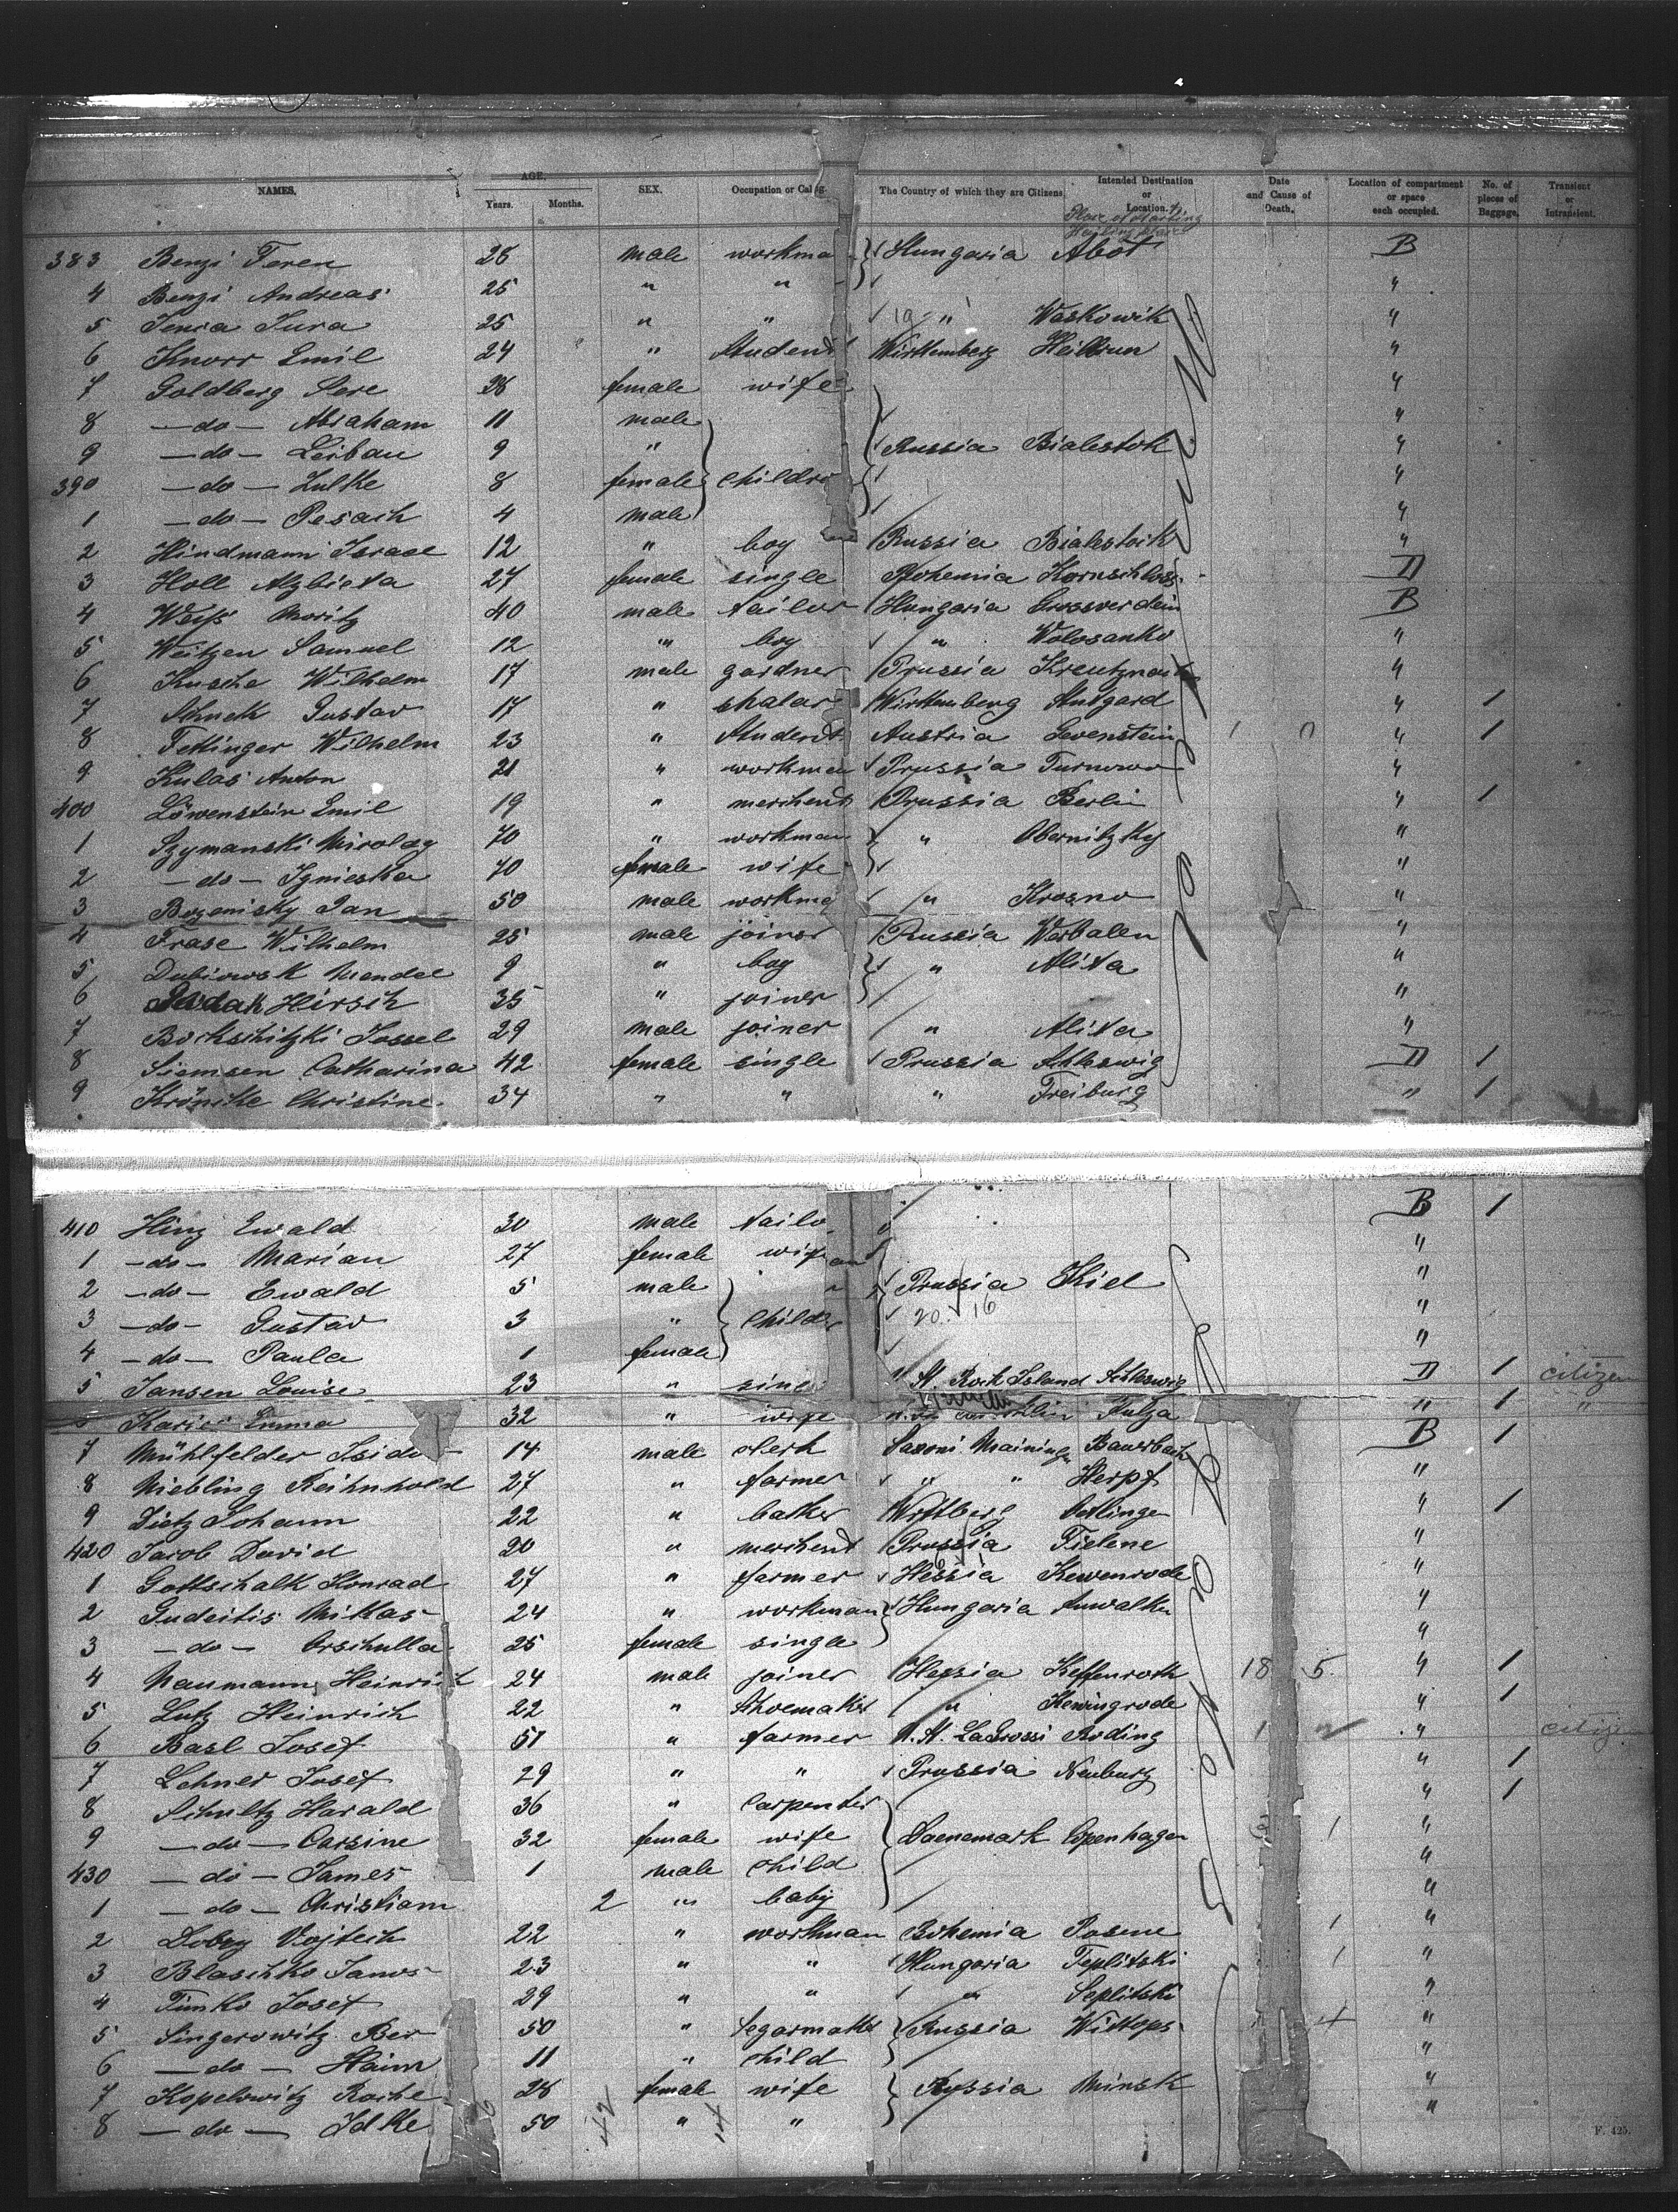 NAMES. AGE. SEX. Occupation or Calling The Country of which they are Citizens. Intended Destination or Location. Date and Cause of Death. Location of compartment or space each occupied. No. of pieces of Baggage. Transient or Intransient.
Years. Months. Place of Starting
383 Benzi Feren 28 male workma Hungaria Abot B
4 Benzi Andreas 25 " " "
5 Jenca Jura 25 " " " Waskowik "
6 Knorr Emil 24 " Student Wirttemberg Heilbrun "
7 Goldberg Sere 28 female wife "
8 -do- Abraham 11 male "
9 -do- Leibau 9 " Russia Bialestok "
390 -do- Zulke 8 female childre "
1 -do- Pesach 4 male "
2 Hindmann Israel 12 " boy Russia Bialestock "
3 Holl Alzbieta 27 female single Bohemia Kornschloss D
4 Weiß Moritz 40 male tailor Hungaria Grosswerdein B
5 Weitzen Samuel 12 " boy " Wolosanko "
6 Kusche Wilhelm 17 male gardner Prussia Kreutznach "
7 Schuck Gustav 17 " skolar Wirttemberg Stutgard " 1
8 Fettinger Wilhelm 23 " Student Austria Levenstein " 1
9 Kulas Anton 21 " workman Prussia Turnowo "
400 Löwenstein Emil 19 " merchent Prussia Berlin " 1
1 Szymanski Nicolay 70 " workman " Obernitzky "
2 -do- Ignieska 70 female wife "
3 Bozeninsky Jan 50 male workma " Krosno "
4 Frase Wilhelm 25 male joiner Russia Werbalen "
5 Dubiowsk Mendel 9 " boy " Alita "
6 Hirsch 35 " joiner "
7 Borkschitzki Jossel 29 male joiner " Alita "
8 Siemsen Catharina 42 female single Prussia Schleswig D 1
9 Krönike Christine 34 " " " Freiburg " 1
410 Hinz Ewald 30 male tailo B 1
1 -do- Marian 27 female wife "
2 -do- Ewald 5 male Prussia Kiel "
3 -do- Gustav 3 " Childr 20 16 "
4 -do- Paula 1 female "
5 Jansen Louise 23 " sing Rock Island Schleswig D 1 citizen
Emma 32 " wife Fulga " 1 "
7 Mühlfelder Isido 14 male clerk Saxoni Maining Bauerbach B 1
8 Niebling Reihnhold 27 " farmer " " Herpf "
9 Dietz Johann 22 " baker Wrttberg Oetlinge " 1
420 Jacob David 20 " merchent Prussia Fielene "
1 Gottschalk Konrad 27 " farmer Hessia Kewenrode "
2 Gudeitis Mikas 24 " workman Hungaria Suwalka "
3 -do- Orschulla 25 female single "
4 Naumann Heinrich 24 male joiner Hessia Keffenroth 18 5 " 1
5 Lutz Heinrich 22 " Shoemaker " Kewingrode " 1
6 Basl Josef 51 " farmer N. A. LaCrossi Roding " citize
7 Lehner Josef 29 " " Prussia Neuburg " 1
8 Schultz Harald 36 " Carpenter " 1
9 -do- Carsine 32 female wife Daenemark Copenhagen 1 "
430 -do- James 1 male child "
1 -do- Christiam 2 " baby "
2 Dobry Vojtech 22 " workman Bohemia Posene 1 "
3 Blaschko Janos 23 " " Hungaria Teplitski 1 "
4 Timko Josef 29 " " " Seplitski "
5 Singerowitz Ber 50 " Segarmaker Russia Witkops "
6 -do- Haim 11 " child "
7 Kopelowitz Roche 28 female wife Russia Minsk "
8 -do- Idke 50 " " "
F. 425.